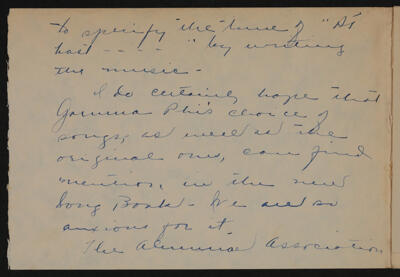 to specify the tune of "At
last - - - -" by writing
the music -
I do certainly hope that
Gamma Phi's choice of
songs, as well as the
original ones, can find
mention, in the new
Song Book - We are so
anxious for it.
The Alumnae Association